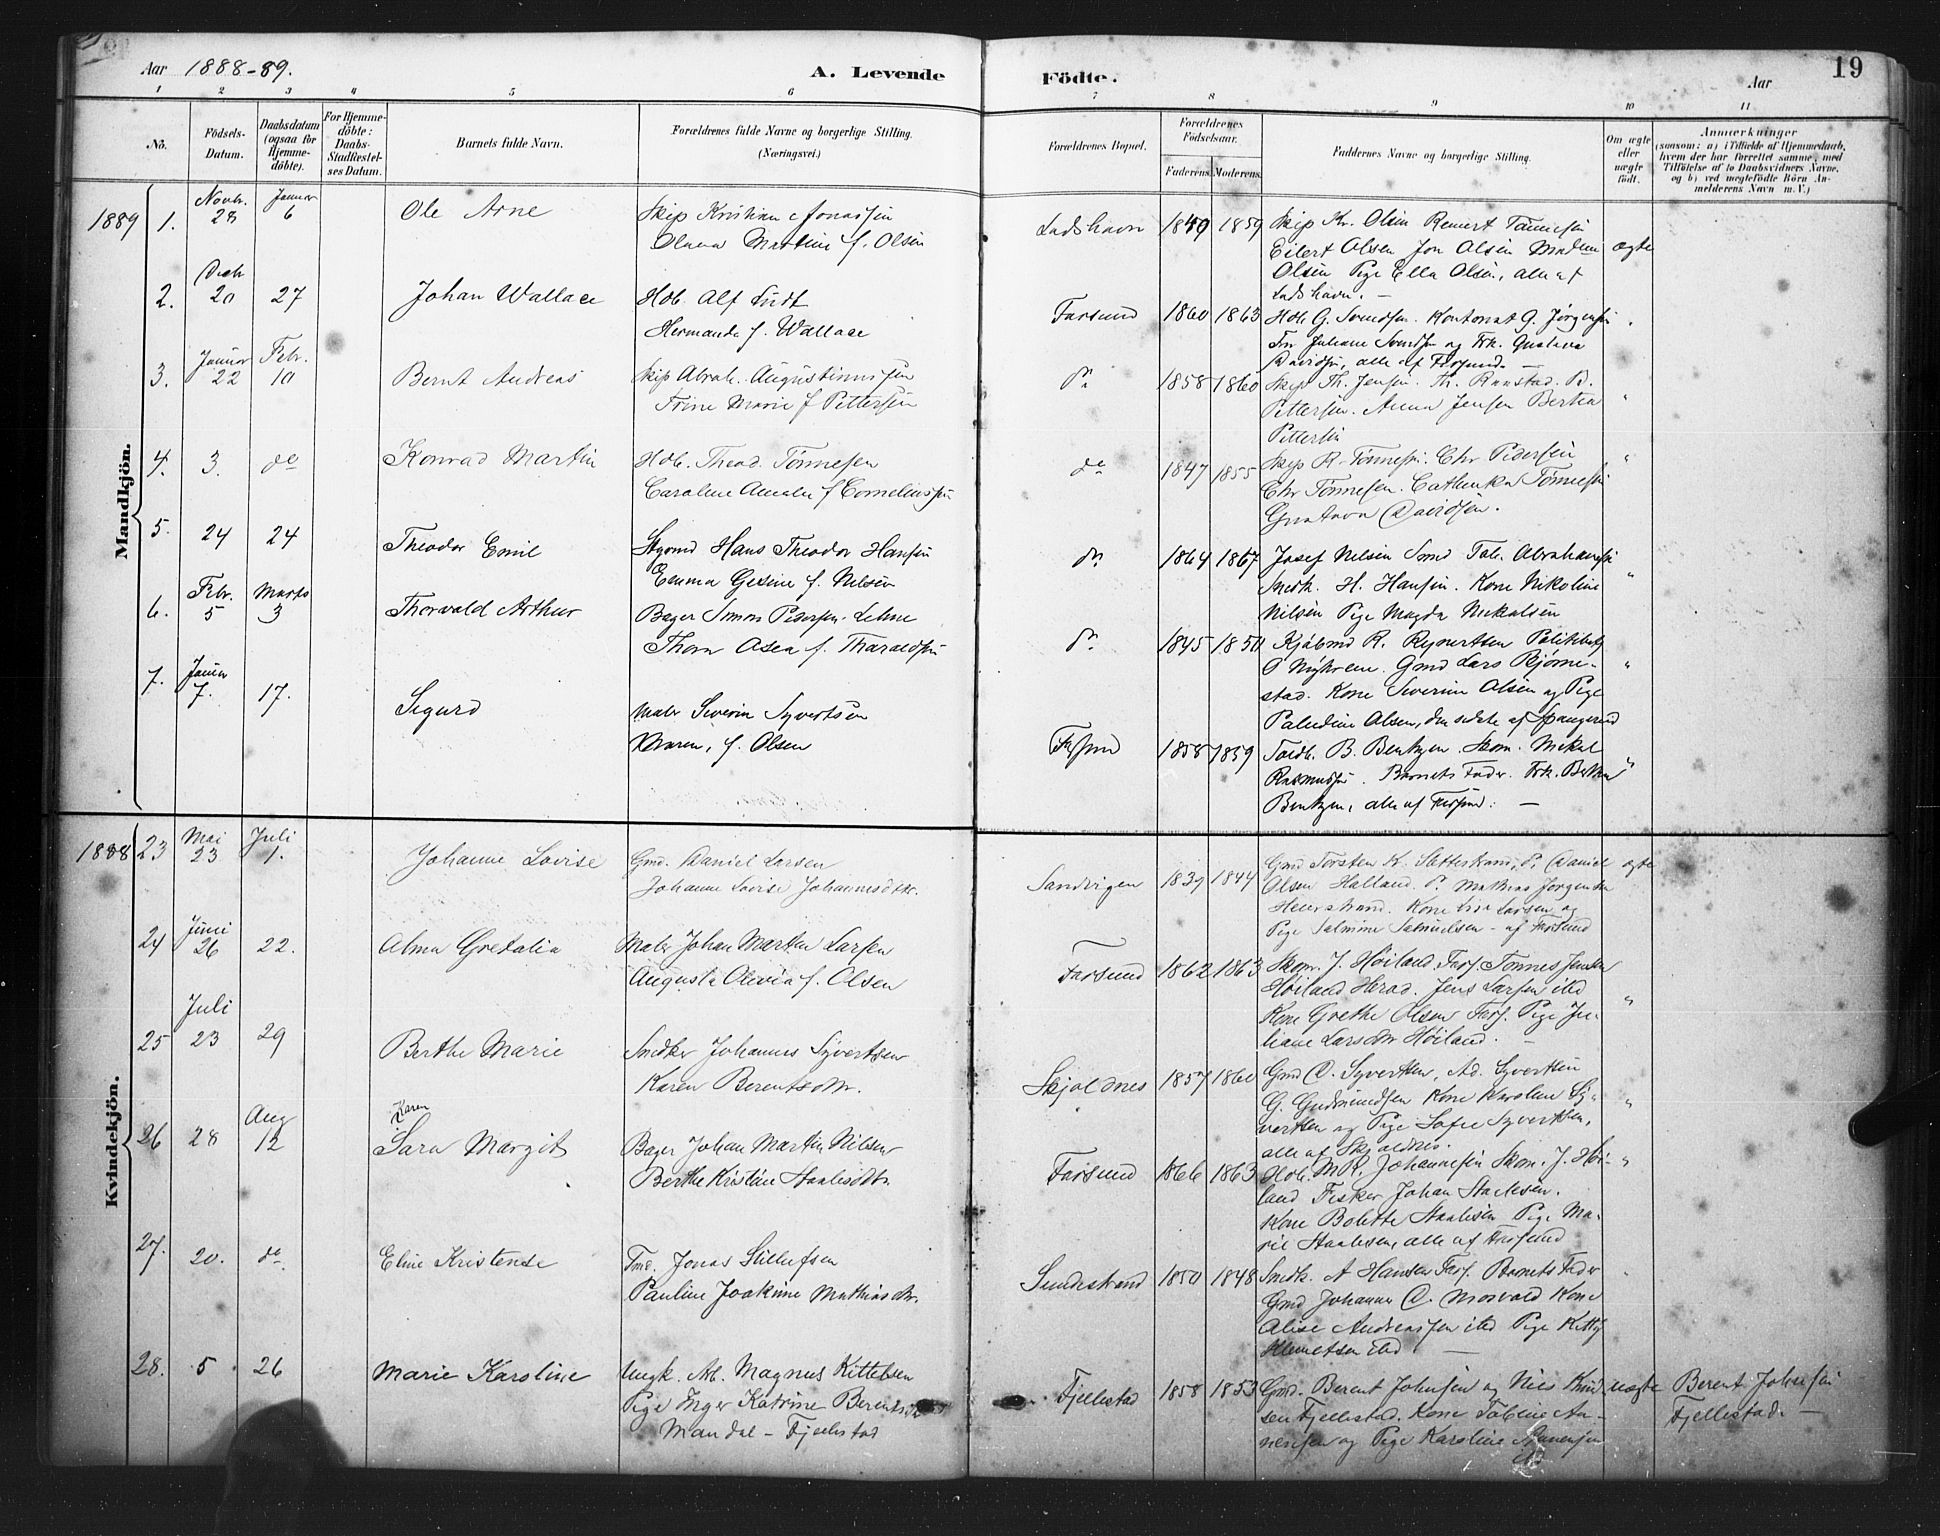 Aar 1888-89. A. Levende Födte. Aar 19
1 2 3 4 5 6 7 8 9 10 11
No.
Födsels-Datum.
Daabsdatum (ogsaa for Hjemme-döbte).
For Hjemme-döbte: Daabs-Stadfæstel-ses Datum.
Barnets fulde Navn.
Forældrenes fulde Navne og borgerlige Stilling. (Næringsvei.)
Forældrenes Bopæl.
Forældrenes Födselsaar.
Faderens. Moderens.
Faddernes Navne og borgerlige Stilling.
Om ægte eller uægte født.
Anmærkninger
(saasom: a) i Tilfælde af Hjemmedaab, hvem der har forrettet samme, med Tilföielse af to Daabsvidners Navne, og b) ved uægtefödte Börn An-melderens Navn m. V.)
Mandkjön.
1889 1. Novbr. 28 Januar 6 Ole Arne
Skip Kristian Jonassen
Olava Martine f. Olsen
Ladshavn 1849 1859
Skip Kr. Olsen Reinert Tønnesen
Eilert Olsen Jon Olsen Madam
Olsen Pige Ella Olsen, alle af
Ladshavn. —
ægte
2. Decb. 20 27 Johan Wallace
Hdb. Alf Ludt
Hermande f. Wallace
Farsund 1860 1863
Hdb G. Svendsen. Kontorist G. Jörgensen
Fr Juliane Svendsen og Frk. Gustava
Davidsen, alle af Farsund. —
"
3. Januar 22 Febr. 10 Bernt Andreas
Skip Abrah. Augustinussen
Trine Marie f Pettersen
do 1858 1860
Skip Th. Jensen. Th. Raastad. B.
Pettersen. Anna Jensen Bertea
Pettersen
"
4. 3. do Konrad Martin
Hdb. Theod. Tönnesen
Caroline Amalie f Corneliussen
do 1847 1855
Skip R. Tönnesen. Chr Pedersen
Chr Tönnesen. Cathinka Tönnesen
Gustava Davidsen.
"
5. 24 24 Theodor Emil
Styrmd Hans Theodor Hansen
Emma Gesine f. Nilsen
do 1864 1867
Josef Nilsen Smd Tob. Abrahamsen
Snedk. H. Hansen. Kone Nikoline
Nilsen Pige Magda Mekalsen
"
6. Febr. 5 Marts 3 Thorvald Arthur
Bager Simon Pedersen Lehne
Thora Asea f. Tharaldsen
do 1845 1850
Kjöbmd R. Reynertsen Politibetj
O Myhrene. Gmd Lars Bjørne-
stad. Kone Severine Olsen og Pige
Paludine Olsen, den sidste af Spangereid
"
7. Januar 7. 17. Sigurd
Maler Severin Syvertsen
Maren, f. Olsen
Farsund 1858 1859
Toldb. B. Bentzen. Skom. Mekal
Rasmussen. Barnets Fader. Frk. Bertha
Bentzen, alle af Farsund. —
"
Kvindekjön.
1888 23 Mai 23 Juli 1. Johanne Lovise
Gmd. Daniel Larsen
Johanne Lovise Johannesdtr.
Sandvigen 1839 1844
Gmd Torsten K. Sætterstrand, do Daniel
Olsen Halland. do Mathias Jörgensen
Heierstrand. Kone Lise Larsen og
Pige Salmine Samuelsen - af Farsund
ægte
24 Juni 26 22. Alma Gretalia
Maler Johan Martin Larsen
Augusta Olivia f. Olsen
Farsund 1862 1863
Skom. J. Höiland, Fars. Tönnes Jensen
Höiland Herad. Jens Larsen ibd
Kone Grethe Olsen Fars. Pige Ju-
liane Larsdtr Höiland. —
"
25 Juli 23 29 Berthe Marie
Snedker Johannes Syvertsen
Karen Berentsdtr.
Skjoldnes 1857 1860
Gmd O. Syvertsen, Ad. Syvertsen
G. Gudmundsen Kone Karoline Sy-
vertsen og Pige Sofie Syvertsen,
alle af Skjoldnes.
"
26 28 Aug 12 Karen
Sara Margit
Bager Johan Martin Nilsen
Berthe Kristine Staalesdtr.
Farsund 1866 1863
Hdb. M.R. Johannesen Skom. J. Höi-
land Fisker Johan Staalesen.
Kone Bolette Staalesen Pige Ma-
rie Staalesen, alle af Farsund
"
27. 20. do Eline Kristense
Tmd. Jonas Stillufsen
Pauline Joakime Mathiasdtr.
Sundestrand 1850 1848
Snedk. A Hansen Fars. Barnets Fader
Gmd Johannes O. Mosvold Kone
Alise Andreassen ibd Pige Kitty
Helmetsen ibd —
"
28. 5 26 Marie Karoline
Ungk. Arb. Magnus Kittelsen
Pige Inger Katrine Berentsd
Mandal - Fjellestad
Fjellestad 1858 1853
Gmd. Berent Johnsen og Nils Knud
sen Fjellestad. Kone Tobine An-
nensen og Pige Karoline Annensen
ibd
uægte
Berent Johnsen
Fjellestad. —